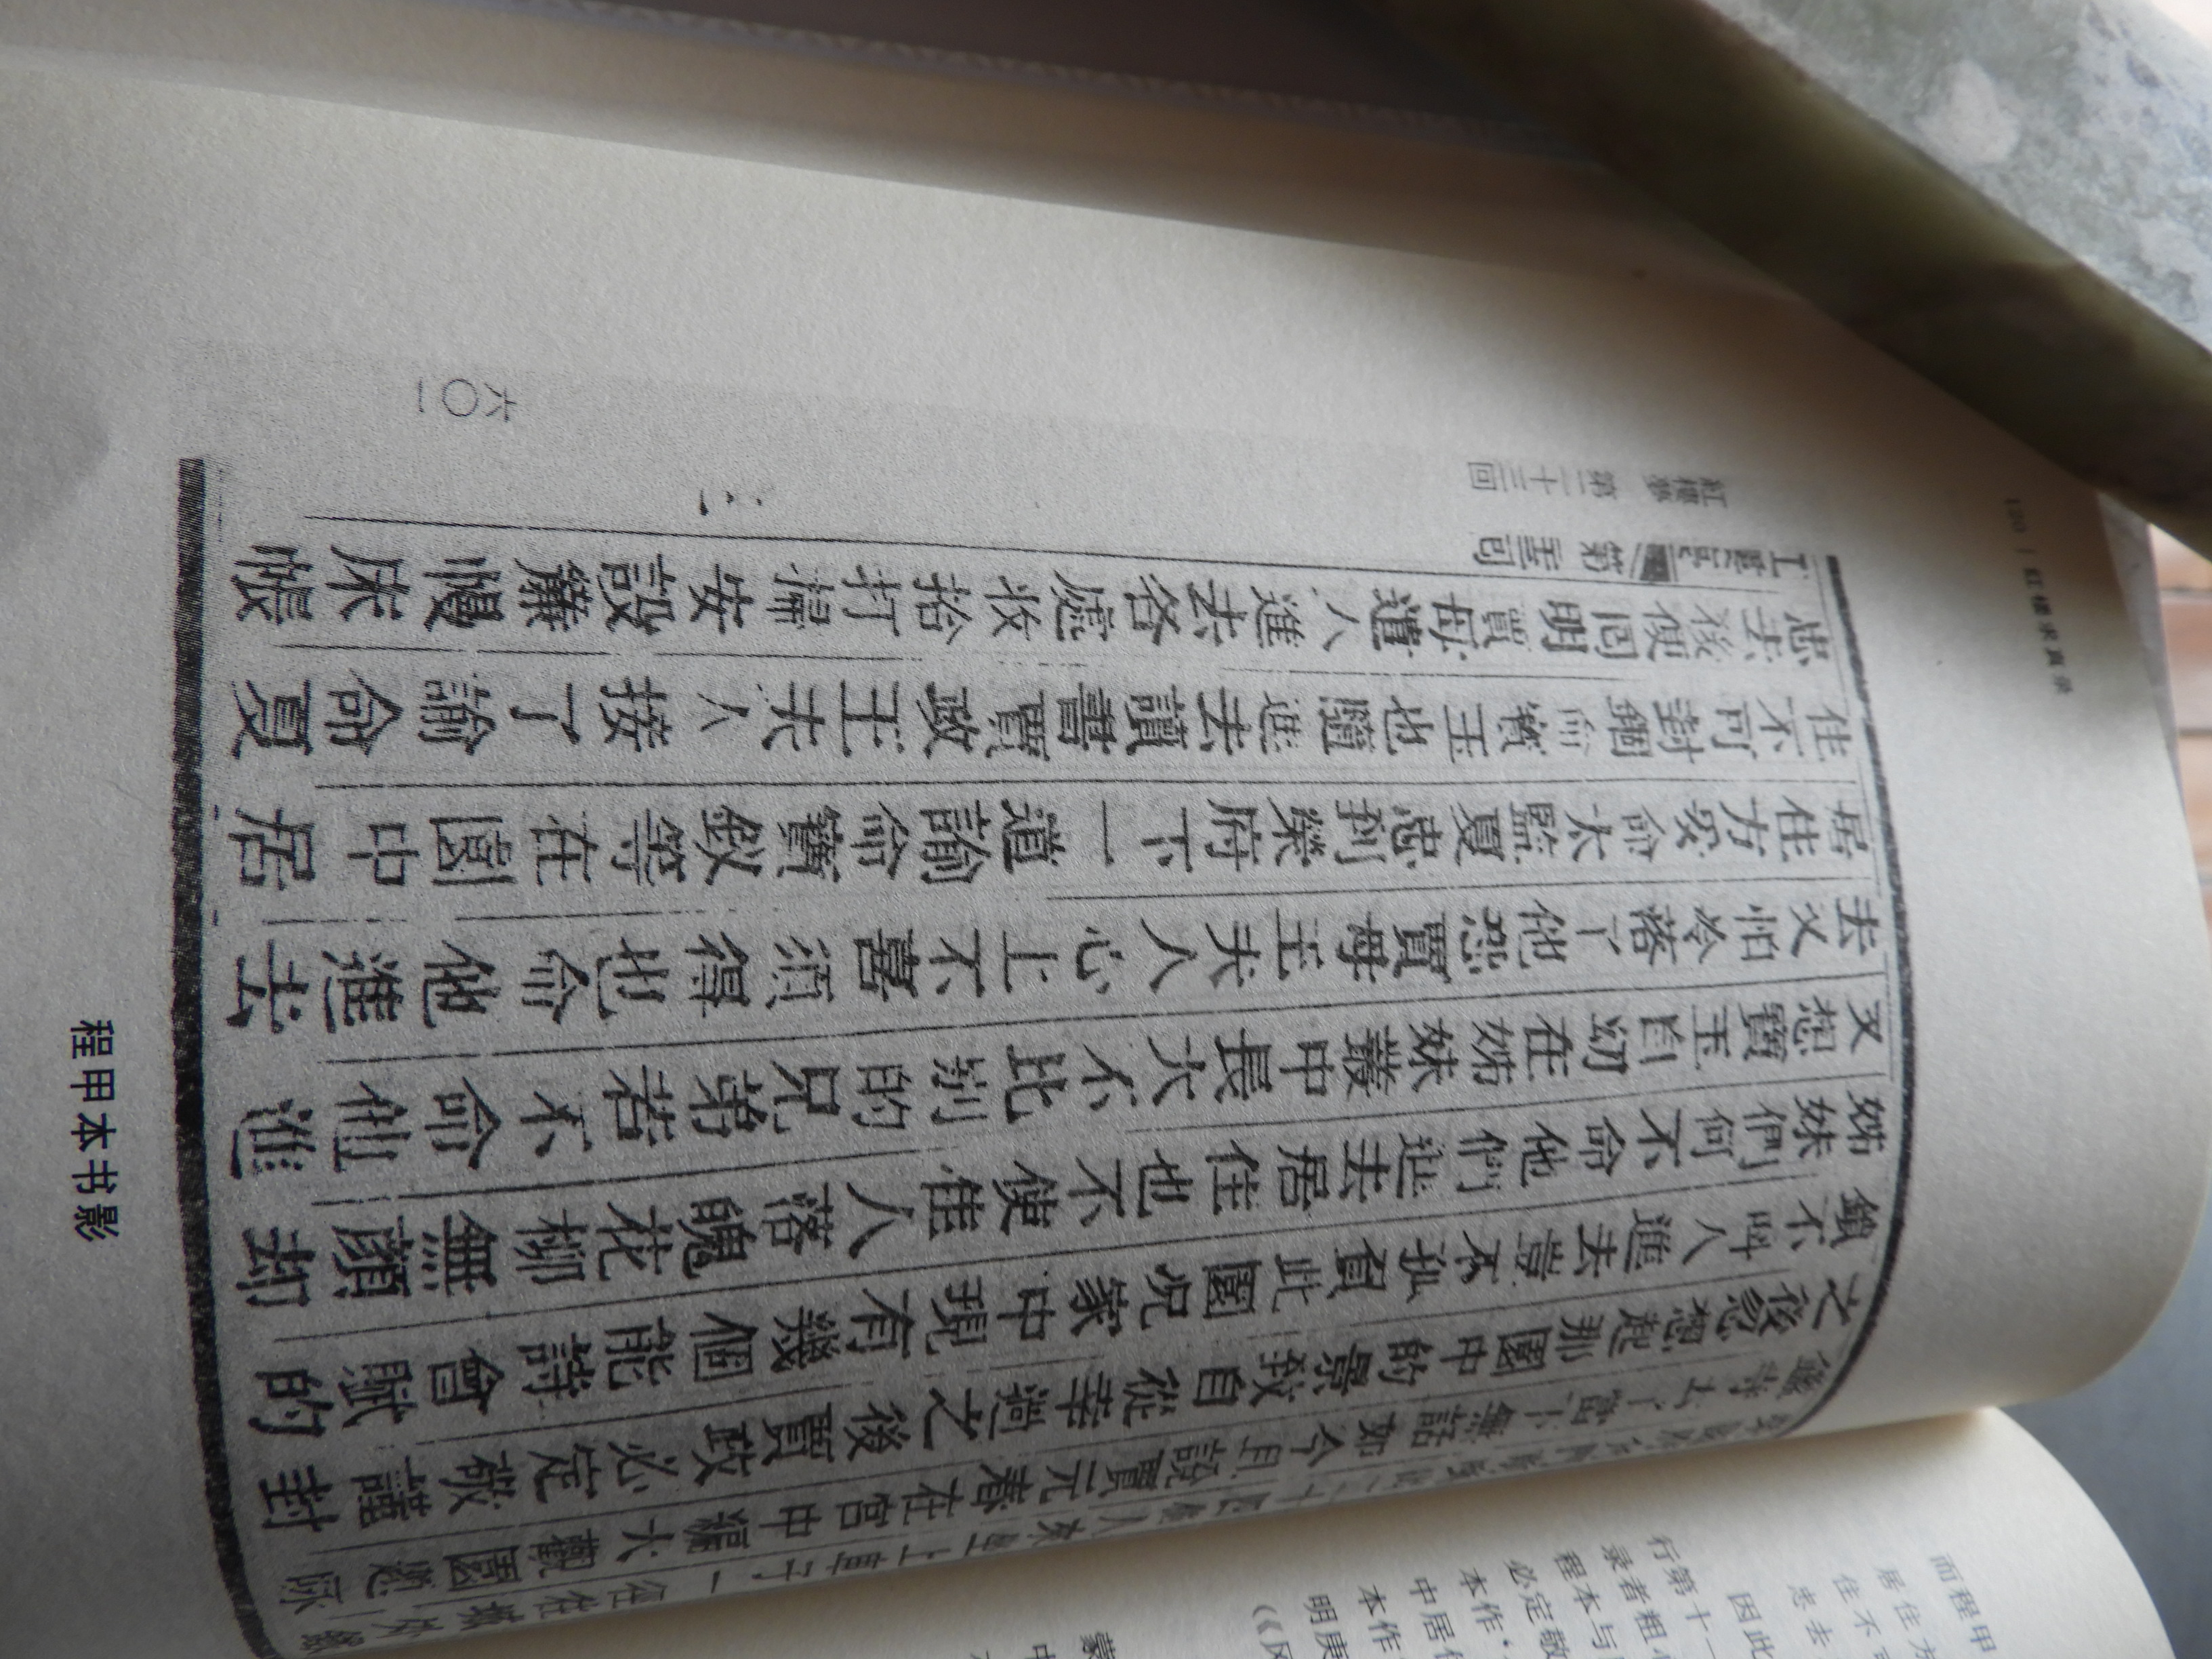 120 | 红楼求真录
當下無話如今且說賈元春在宮中編大觀園題詠
之後忽想起那園中的景致自從幸過之後賈政必定敬謹封
鎖不呌人進去豈不孤負此園况家中現有幾個能詩會賦的
姊妹們何不命他們進去居住也不使佳人落魄花柳無顏却
又想寶玉自幼在姊妹叢中長大不比別的兄弟若不命他進
去又怕冷落了他恐賈母王夫人心上不喜須得也命他進去
居住方妥命太監夏忠到榮府下一道諭命寳釵等在園中居
住不可封錮命寳玉也隨進去讀書賈政王夫人接了諭命夏
忠去後便囘明賈母遣人進去各處收拾打掃安設簾幔床帳
紅樓夢 第二十三回
六〇一
程甲本书影
而程甲
居住方
忠去
因此
行第十一
录者粗
程本与
必定敬
本作
本作
明庚